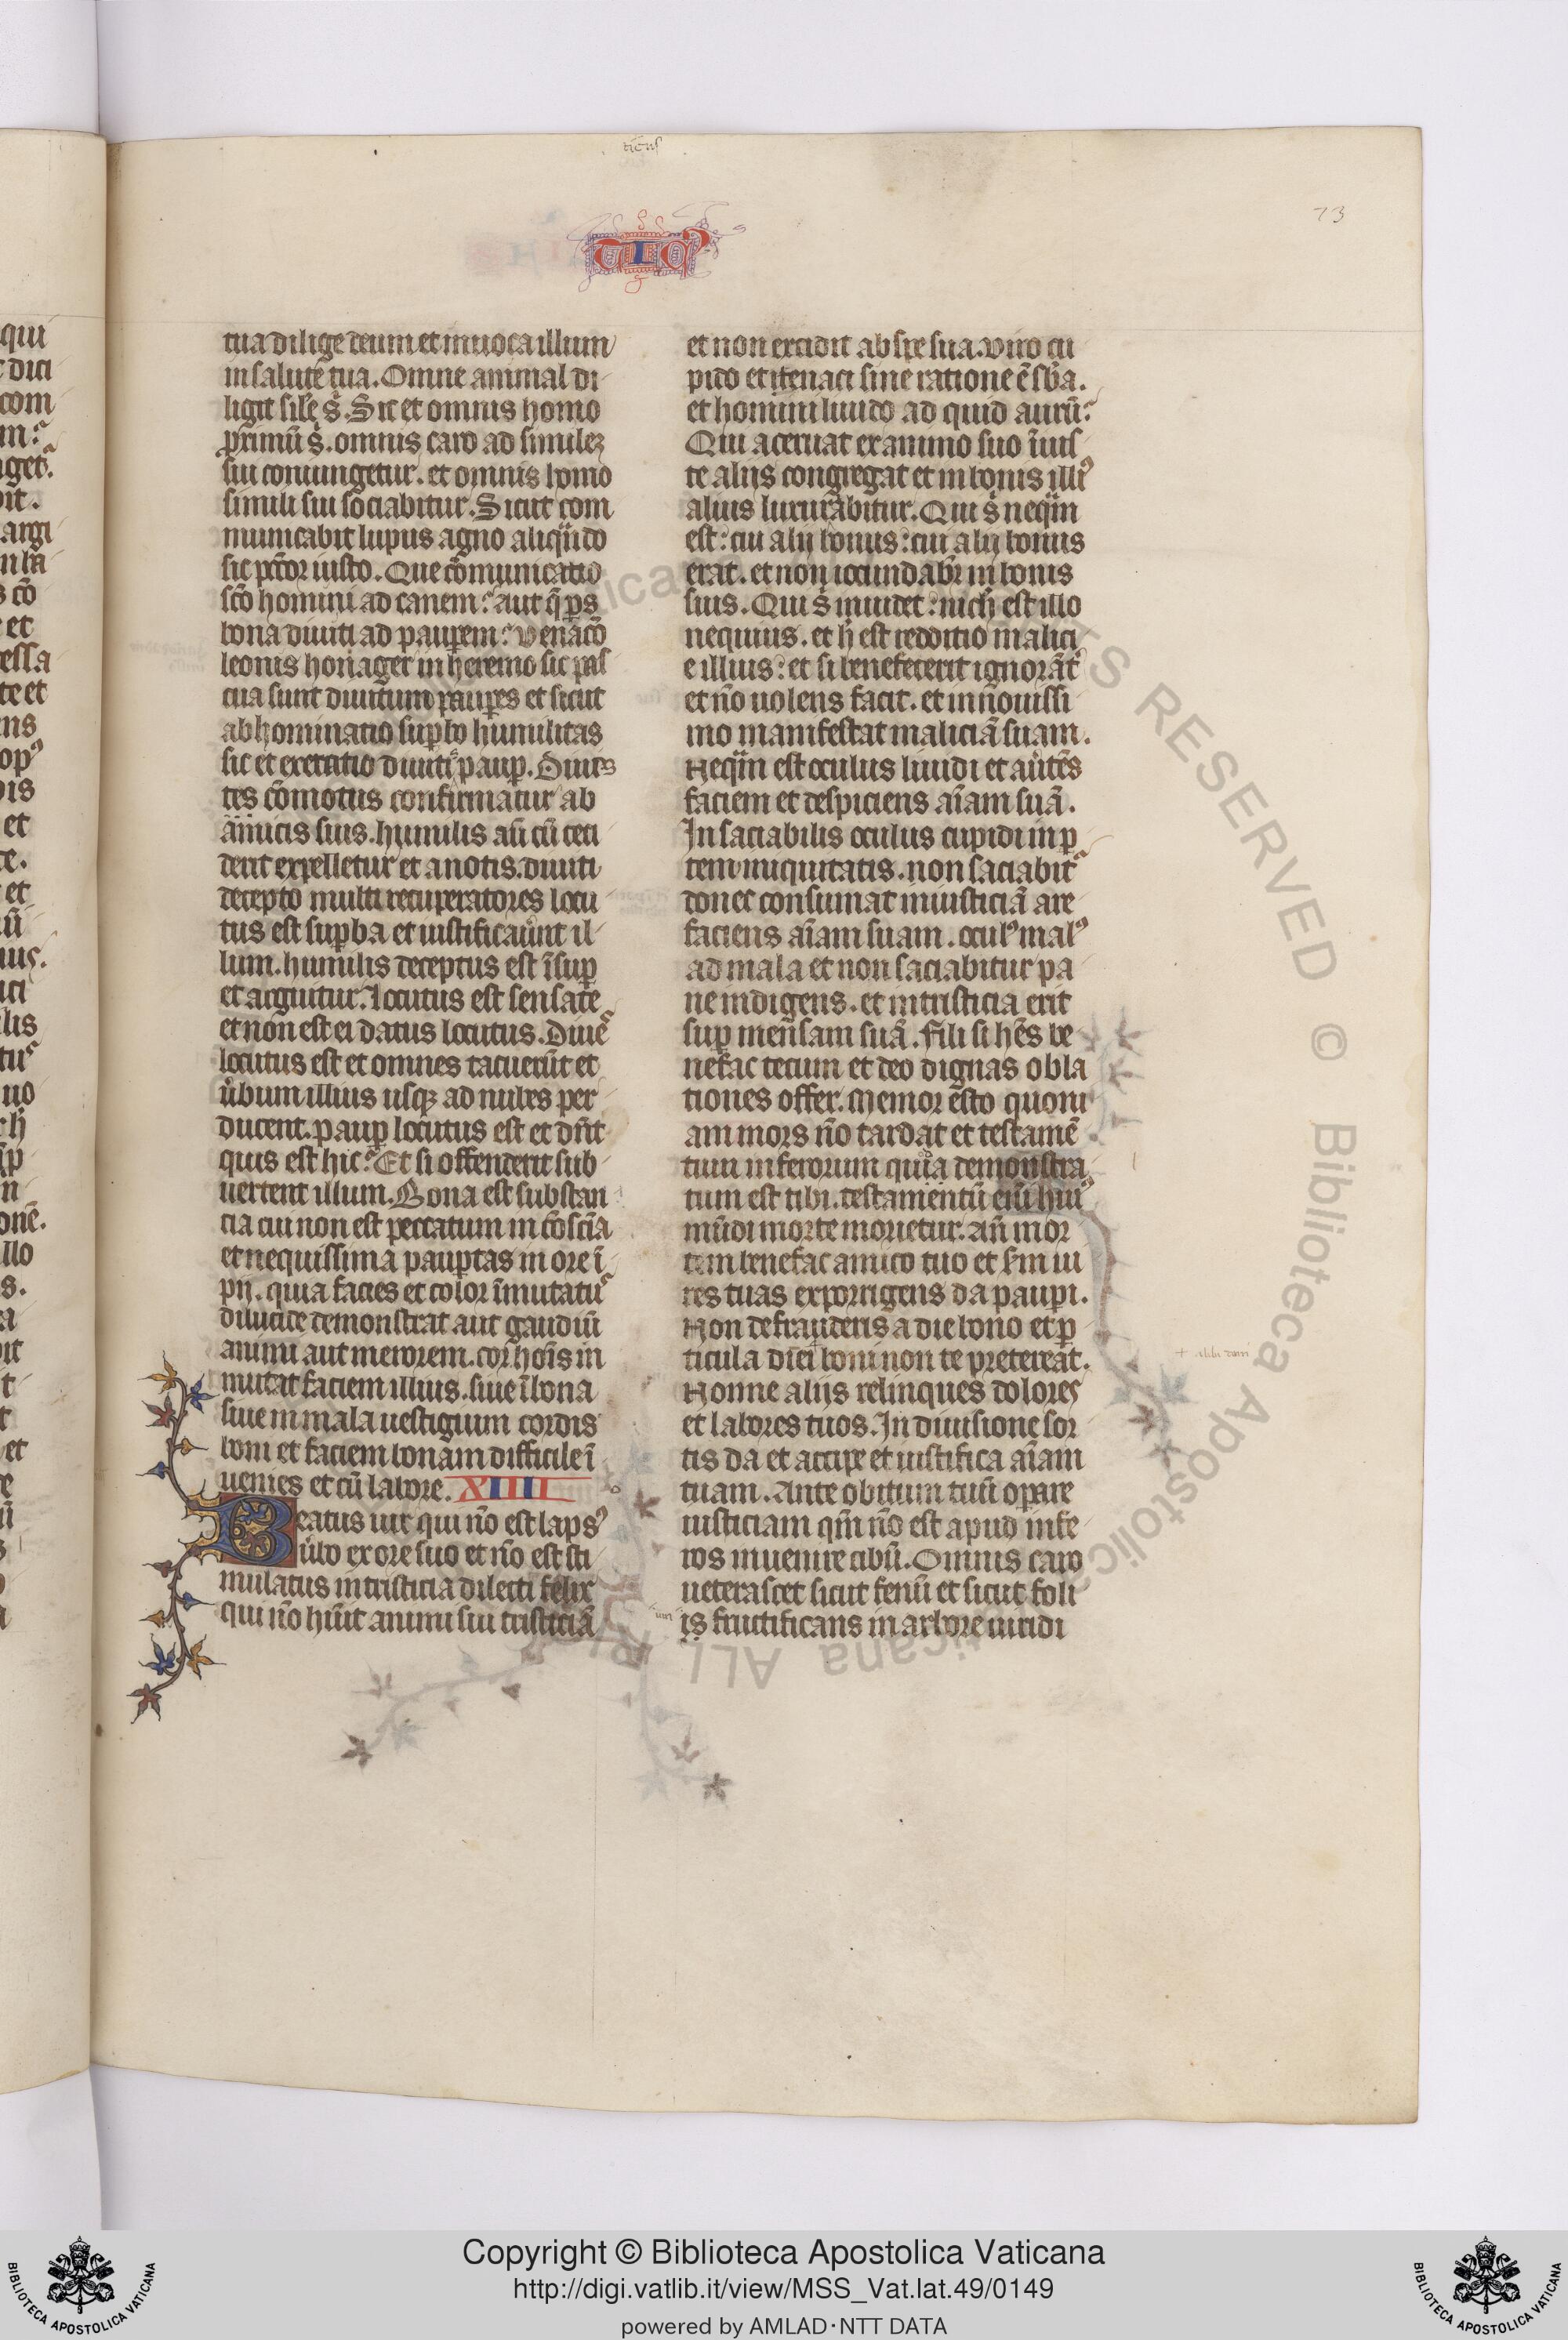 ticus
TIC9
73
tua dilige deum et inuoca illum
in salutē tua. Omne animal di
ligit silē s. Sic et omnis homo
proximū s. omnis caro ad similez
sui coniungetur. et omnis homo
simili sui sociabitur. Sicut com
municabit lupus agno aliqñdo
sic pctor iusto. Que cōmunicatio
scō homini ad canem? aut q̄ ps
bona diuiti ad pauperem? Venacō
leonis honager in heremo sic pas
cua sunt diuitum pauperes et sicut
abhominatio superbo humilitas
sic et execratio diuiti paup. Diuis
tes cōmotus confirmatur ab
amicis suis. humilis aū cū ceci
derit expelletur et a notis. diuiti
decepto multi recuperatores locu
tus est superba et iustificauunt il
lum. humilis deceptus est īsup
et arguitur. Locutus est sensate
et non est ei datus locutus. Diues
locutus est et omnes tacuerūt et
ubum illius usq; ad nubes per
ducent. paup locutus est et dnt
quis est hic? Et si offenderit sub
uertent illum. Bona est substan
cia cui non est peccatum in cōscīa
et nequissima paupertas in ore ī
pij. quia facies et color īmutatur
dilucide demonstrat aut gaudiū
animi aut merorem. cor hoīs in
mutat faciem illius. siue ī bona
siue in mala uestigium cordis
boni et faciem bonam difficile ī
uenies et cū labore. XIIII
Beatus uir qui nō est laps9
ubo ex ore suo et nō est sti
mulatus in tristicia dilecti felix
qui nō hūit animi sui tristiciā
et non excidit ab spe sua. Viro cu
pido et tenaci sine ratione ē sba.
et homini liuido ad quid aurū?
Qui aceruat ex animo suo iius
te alijs congregat et in bonis illi9
alius luxurabitur. Qui s neqm
est: cui alij bonus: cui alij bonus
erat. et non iocundabr in bonis
suis. Qui s inuidet: nich est illo
nequius. et h est redditio malici
e illius: et si benefecerit ignorāt
et nō uolens facit. et in nouissi
mo manifestat maliciā suam.
Neqm est oculus liuidi et auertēs
faciem et despiciens aīam suā.
In saciabilis oculus cupidi in p
tem iniquitatis. non saciabitr
donec consumat iniusticiā are
faciens aīam suam. ocul9 mal9
ad mala et non saciabitur pa
ne indigens. et in tristicia erit
sup mensam suā. Fili si hēs be
nefac tecum et deo dignas obla
tiones offer. Memor esto quoni
am mors nō tardat et testamē
tum inferorum quia demonstra
tum est tibi. testamentū enī hui9
mūdi morte morietur. Añ mor
tem benefac amico tuo et scdm ui
res tuas exporrigens da pauperi.
Non defrauderis a die bono et p
ticula diei boni non te pretereat.
Nonne alijs relinques dolores
et labores tuos. In diuisione sor
tis da et accipe et iustifica aīam
tuam. Ante obitum tuū operare
iusticiam qm nō est apud infe
ros inuenire cibū. Omnis caro
ueterascet sicut fenū et sicut foli
is fructificans in arbore uiridi
Copyright © Biblioteca Apostolica Vaticana
http://digi.vatlib.it/view/MSS_Vat.lat.49/0149
powered by AMLAD·NTT DATA
BIBLIOTECA APOSTOLICA VATICANA
BIBLIOTECA APOSTOLICA VATICANA